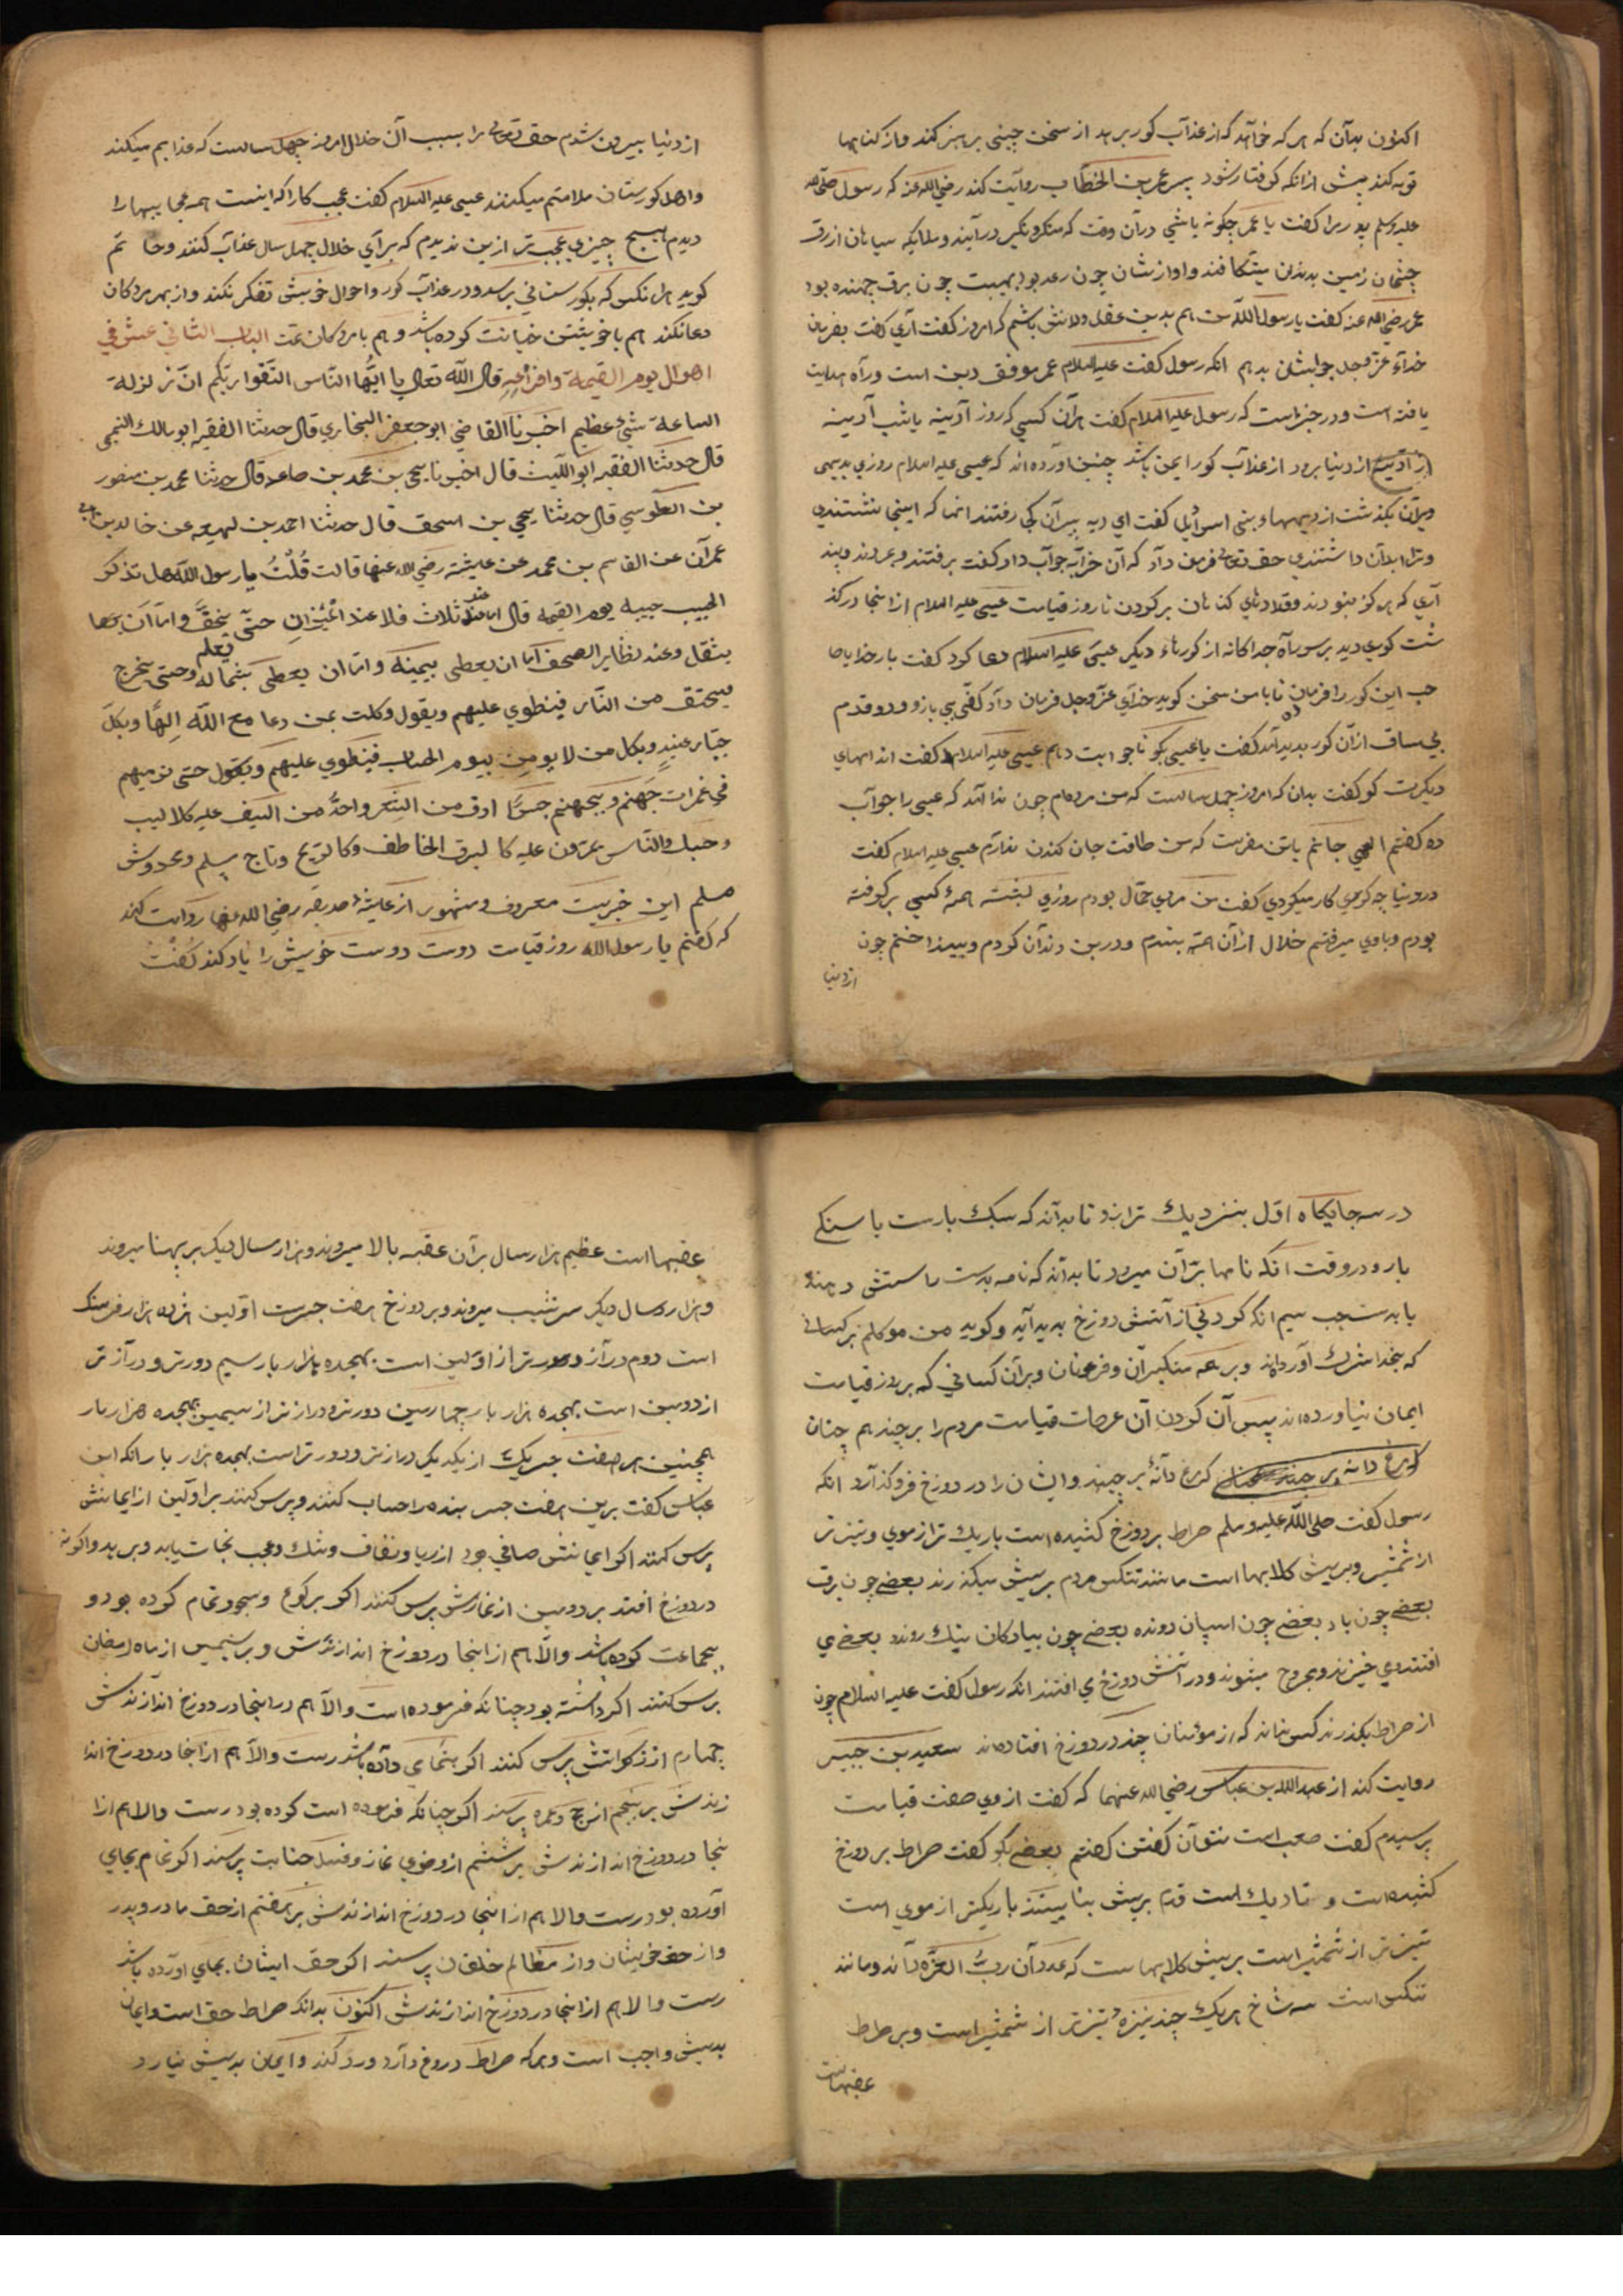 اکنون بدآن که هر که خوآهد که از عذآب کور برهد از سخن چینی پرهیز کند و از کناهها
توبه کند پیش از انکه کرفتار شود پس عمر بن الخطاب روآیت کند رضی الله عنه که رسول صلی الله
علیه وسلم مرا کفت یا عمر چکونه باشی درآن وقت که منکر و نکیر درآیند و ملایکه سیاهان ازرق
چشمان زمین بدندان میشکافند و اوازشان چون رعد بود بهیبت چون برق جهنده بود
عمر رضی الله عنه کفت یا رسول الله من هم بدین عقل و دانش باشم که امروز کفت آری کفت بفرمان
خدآء عز وجل جوابشان بدهم انکه رسول کفت علیه السلام عمر موفق دین است و رآه هدایت
یافته است و در خبر است که رسول علیه السلام کفت هرآن کسی که روز آدینه یا شب آدینه
از دنیا برود از عذآب کور ایمن باشد چنین آورده اند که عیسی علیه السلام روزی بدیهی
ویرآن بکذشت از دیهها بنی اسرائیل کفت ای دیه ویرآن کجا رفتند انها که اینجا نشستندی
و ترا ابدآن داشتندی حق تعالی فرمان دآد که آن خرآبه جوآب داد کفت برفتند و بمردند
آری که هر کز نبودند و قلادهای کناهان بر کردن تا روز قیامت عیسی علیه السلام ازانجا در کذ
شت کوری دید بر سر رآه جداکانه از کورهاء دیکر عیسی علیه السلام دعا کرد کفت بار خدایا صا
حب این کور را فرمان ده تا با من سخن کوید خدآی عز وجل فرمان دآد کفی بی بازو و دو قدم
بی ساق ازآن کور بدید آمد کفت یا عیسی بکو تا جوابت دهم عیسی علیه السلام کفت
دیکرت کو کفت بدان که امروز چهل سالست که من مرده‌ام چون ندا آمد که عیسی را جوآب
ده کفتم الهی جانم باتن مفرست که من طاقت جان کندن ندارم عیسی علیه السلام کفت
در دنیا چه کردی کار میکردی کفت من مردی حمال بودم روزی پشته هیمه کسی بر کرفته
بودم و باوی میرفتم خلال ازآن هیمه بستدم و در بن دندآن کردم و بینداختم چون
از دنیا
از دنیا بیرون شدم حق تعالی مرا بسبب آن خلال امروز چهل سالست که عذابم میکند
واهل کورستان ملامتم میکنند عیسی علیه السلام کفت عجب کارا که اینست همه عجایبها را
دیدم هیچ چیزی عجب تر ازین ندیدم که برآی خلال چهل سال عذآب کنند وحا تم
کوید هرانکس که بکورستانی برسد و در عذآب کور و احوال خویش تفکر نکند و از بهر مردکان
دعا نکند هم با خویشتن خیانت کرده باشد و هم با مردکان تمت الباب الثانی عشر فی
اهوال یوم القیمة وافزاعه قال الله تعالی یا ایها الناس اتقوا ربکم ان زلزلة
الساعة شئ عظیم اخبرنا القاضی ابو جعفر البخاری قال حدثنا الفقیه ابو مالک
قال حدثنا الفقیه ابو اللیث قال اخبرنا یحیی بن محمد بن صاعد قال حدثنا محمد بن منصور
بن الطوسی قال حدثنا یحیی بن اسحق قال حدثنا احمد بن لهیعه عن خالد بن ابی
عمرآن عن القاسم بن محمد عن عایشه رضی الله عنها قالت قلت یا رسول الله هل تذکر
الحبیب حبیبه یوم القیمه قال اما عند ثلاث فلا عند المیزان حتی یخف واما ان
یثقل وعند تطایر الصحف اما ان یعطی بیمینه واما ان یعطی بشماله وحتی یخرج
عنق من النار فینطوی علیهم ویقول وکلت بمن دعا مع الله الها وبکل
جبار عنید وبکل من لا یومن بیوم الحساب فینطوی علیهم ویقول حتی ترمیهم
فی غمرات جهنم وبجهنم جسرا ادق من الشعر واحد من السیف علیه کلالیب
وحسک والناس یمرون علیه کالبرق الخاطف وکالریح وناج مسلم ومخدوش
مسلم این خبریست معروف و مشهور از عایشه صدیقه رضی الله عنها روایت کند
که کفتم یا رسول الله روز قیامت دوست دوست خویش را یاد کند کفت
در سه جایکاه اول بنزدیک ترازو تا بدآند که سبک بارست یا سنکی
بار و در وقت انکه نامها برآن میرود تا بدآند که نامه بدست راستش دهند
یا بدست چپ سیم انکه کردنی از آتش دوزخ بدید آید و کوید من موکلم بر کسانی
که بخدا شرک آورده‌اند و بر همه متکبرآن و فرعونان و برآن کسانی که بروز قیامت
ایمان نیاورده‌اند پس آن کردن آن عرصات قیامت مردم را برچیند هم چنان
که مرغ دآنه برچیند وایشان را در دوزخ فرو کذآرد انکه
رسول کفت صلی الله علیه وسلم صراط بر دوزخ کشیده است باریک تر از موی و تیز تر
از شمشیر و بریش کلابها است مانند تنکس مردم بریش میکذرند بعضی چون برق
بعضی چون باد بعضی چون اسپان دونده بعضی چون پیادکان نیک روند و بعضی می
افتند و می خیزند و مجروح میشوند و در آتش دوزخ می افتند انکه رسول کفت علیه السلام چون
از صراط بکذرند کس نماند که از مؤمنان چند در دوزخ افتاده‌اند سعید بن جبیر
روایت کند از عبدالله بن عباس رضی الله عنهما که کفت از وی صفت قیامت
پرسیدم کفت صعب است نتوآن کفتن کفتم بعضی بکو کفت صراط بر دوزخ
کشیده‌است و تاریک است قدم بریش باریکتر از موی است
تیزتر از شمشیر است بریش کلابهاست که عدد آن رب العزه دآند و مانند
تنکس است سه شاخ هر یک چند نیزهٔ تیزتر از شمشیر است و بر صراط
عقبهاست
عقبها است عظیم هزار سال برآن عقبه بالا میروند و هزار سال دیکر بر پهنا میروند
و هزار سال دیکر سر شیب میروند و بر دوزخ هفت جسرست اولین هژده هزار فرسنک
است دوم درآز و دورتر از اولین است بهجده هزار بار سیم دورتر و درآز تر
از دومین است بهجده هزار بار چهارمین دورتر و دراز تر از سیمین بهجده هزار بار
همچنین هر هفت جسر یک از یکدیکر دراز تر و دورتر است بهجده هزار بار انکه ابن
عباس کفت برین هفت جسر بنده را حساب کنند و پرس کنند بر اولین از ایمانش
پرس کنند اکر ایمانش صافی بود از ریا و نفاق و شک و عجب نجات یابد و برهد و اکر نه
در دوزخ افتد بر دومین از نمازش پرس کنند اکر برکوع و سجود تمام کرده بود و
بجماعت کرده باشد والا هم ازانجا در دوزخ اندازندش و بر سیمین از ماه رمضان
پرس کنند اکر داشته بود چنانکه فرموده است والا هم در انجا در دوزخ اندآزندش
چهارم از زکواتش پرس کنند اکر بتمامی داده باشد رست والا هم ازانجا در دوزخ اندا
زندش بر پنجم از حج و عمره پرسند اکر چنانکه فرموده است کرده بود رست والا هم ازا
نجا در دوزخ اندازندش بر ششم از وضوی نماز و غسل جنابت پرسند اکر تمام بجای
آورده بود رست والا هم ازانجا در دوزخ اندازندش بر هفتم از حق مادر و پدر
و از حق خویشان و از مظالم خلقان پرسند اکر حق ایشان بجای آورده باشد
رست والا هم ازانجا در دوزخ اندازندش اکنون بدانکه صراط حق است وایمان
بدیش واجب است و هر که صراط دروغ دآرد و رد کند وایمان بدیش نیارد